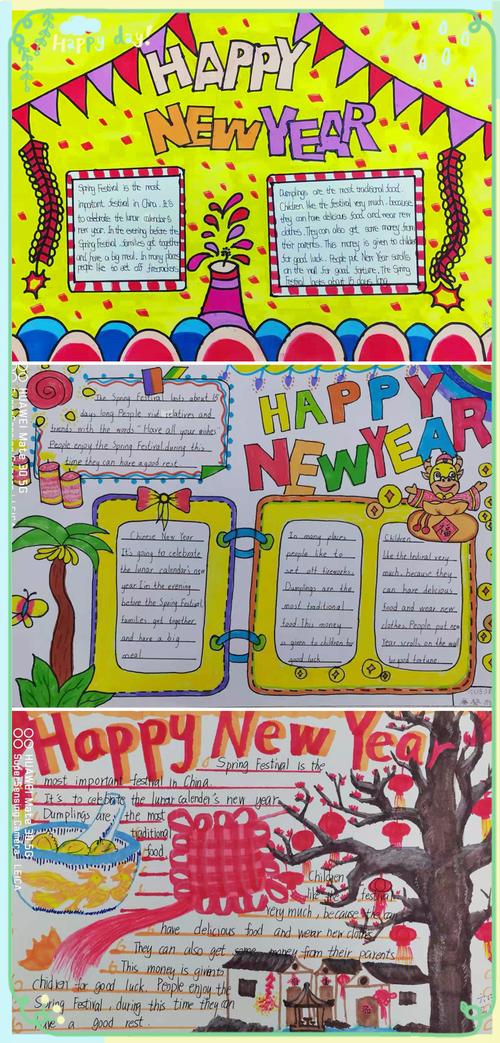 Happy day!
HAPPY
NEW YEAR
Spring Festival is the most
important festival in China. It's
to celebrate the lunar calendar's
new year. In the evening before the
Spring Festival families get together
and have a big meal. In many places
people like to set off firecrackers.
Dumplings are the most traditional food.
Children like the festival very much, because
they can have delicious food and wear new
clothes. They can also get some money from
their parents. This money is given to children
for good luck. People put New Year scrolls
on the wall for good fortune. The Spring
Festival lasts about 15 days long.
The Spring Festival lasts about 15
days long. People visit relatives and
friends with the words "Have all your wishes
People enjoy the Spring Festival, during this
time they can have a good rest.
HAPPY
NEW YEAR
福
Chinese New Year
It's going to celebrate
the lunar calendar's new
year. In the evening
before the Spring Festival,
families get together
and have a big
meal.
In many places
people like to
set off fireworks.
Dumplings are the
most traditional
food. This money
is given to children for
good luck
Children
like the festival very
much, because they
can have delicious
food and wear new
clothes. People put new
Year scrolls on the wall
for good fortune.
HUAWEI Mate 30 5G
Happy New Year
Spring Festival is the
most important festival in China.
It's to celebrate the lunar calender's new year
Dumplings are the most
traditional
food
Children
like the festival
very much, because they can
have delicious food and wear new clothes
They can also get some money from their parents
This money is given to
children for good luck. People enjoy the
Spring Festival, during this time they can
have a good rest.
HUAWEI Mate 30 5G
SuperSensing Camera | LEICA